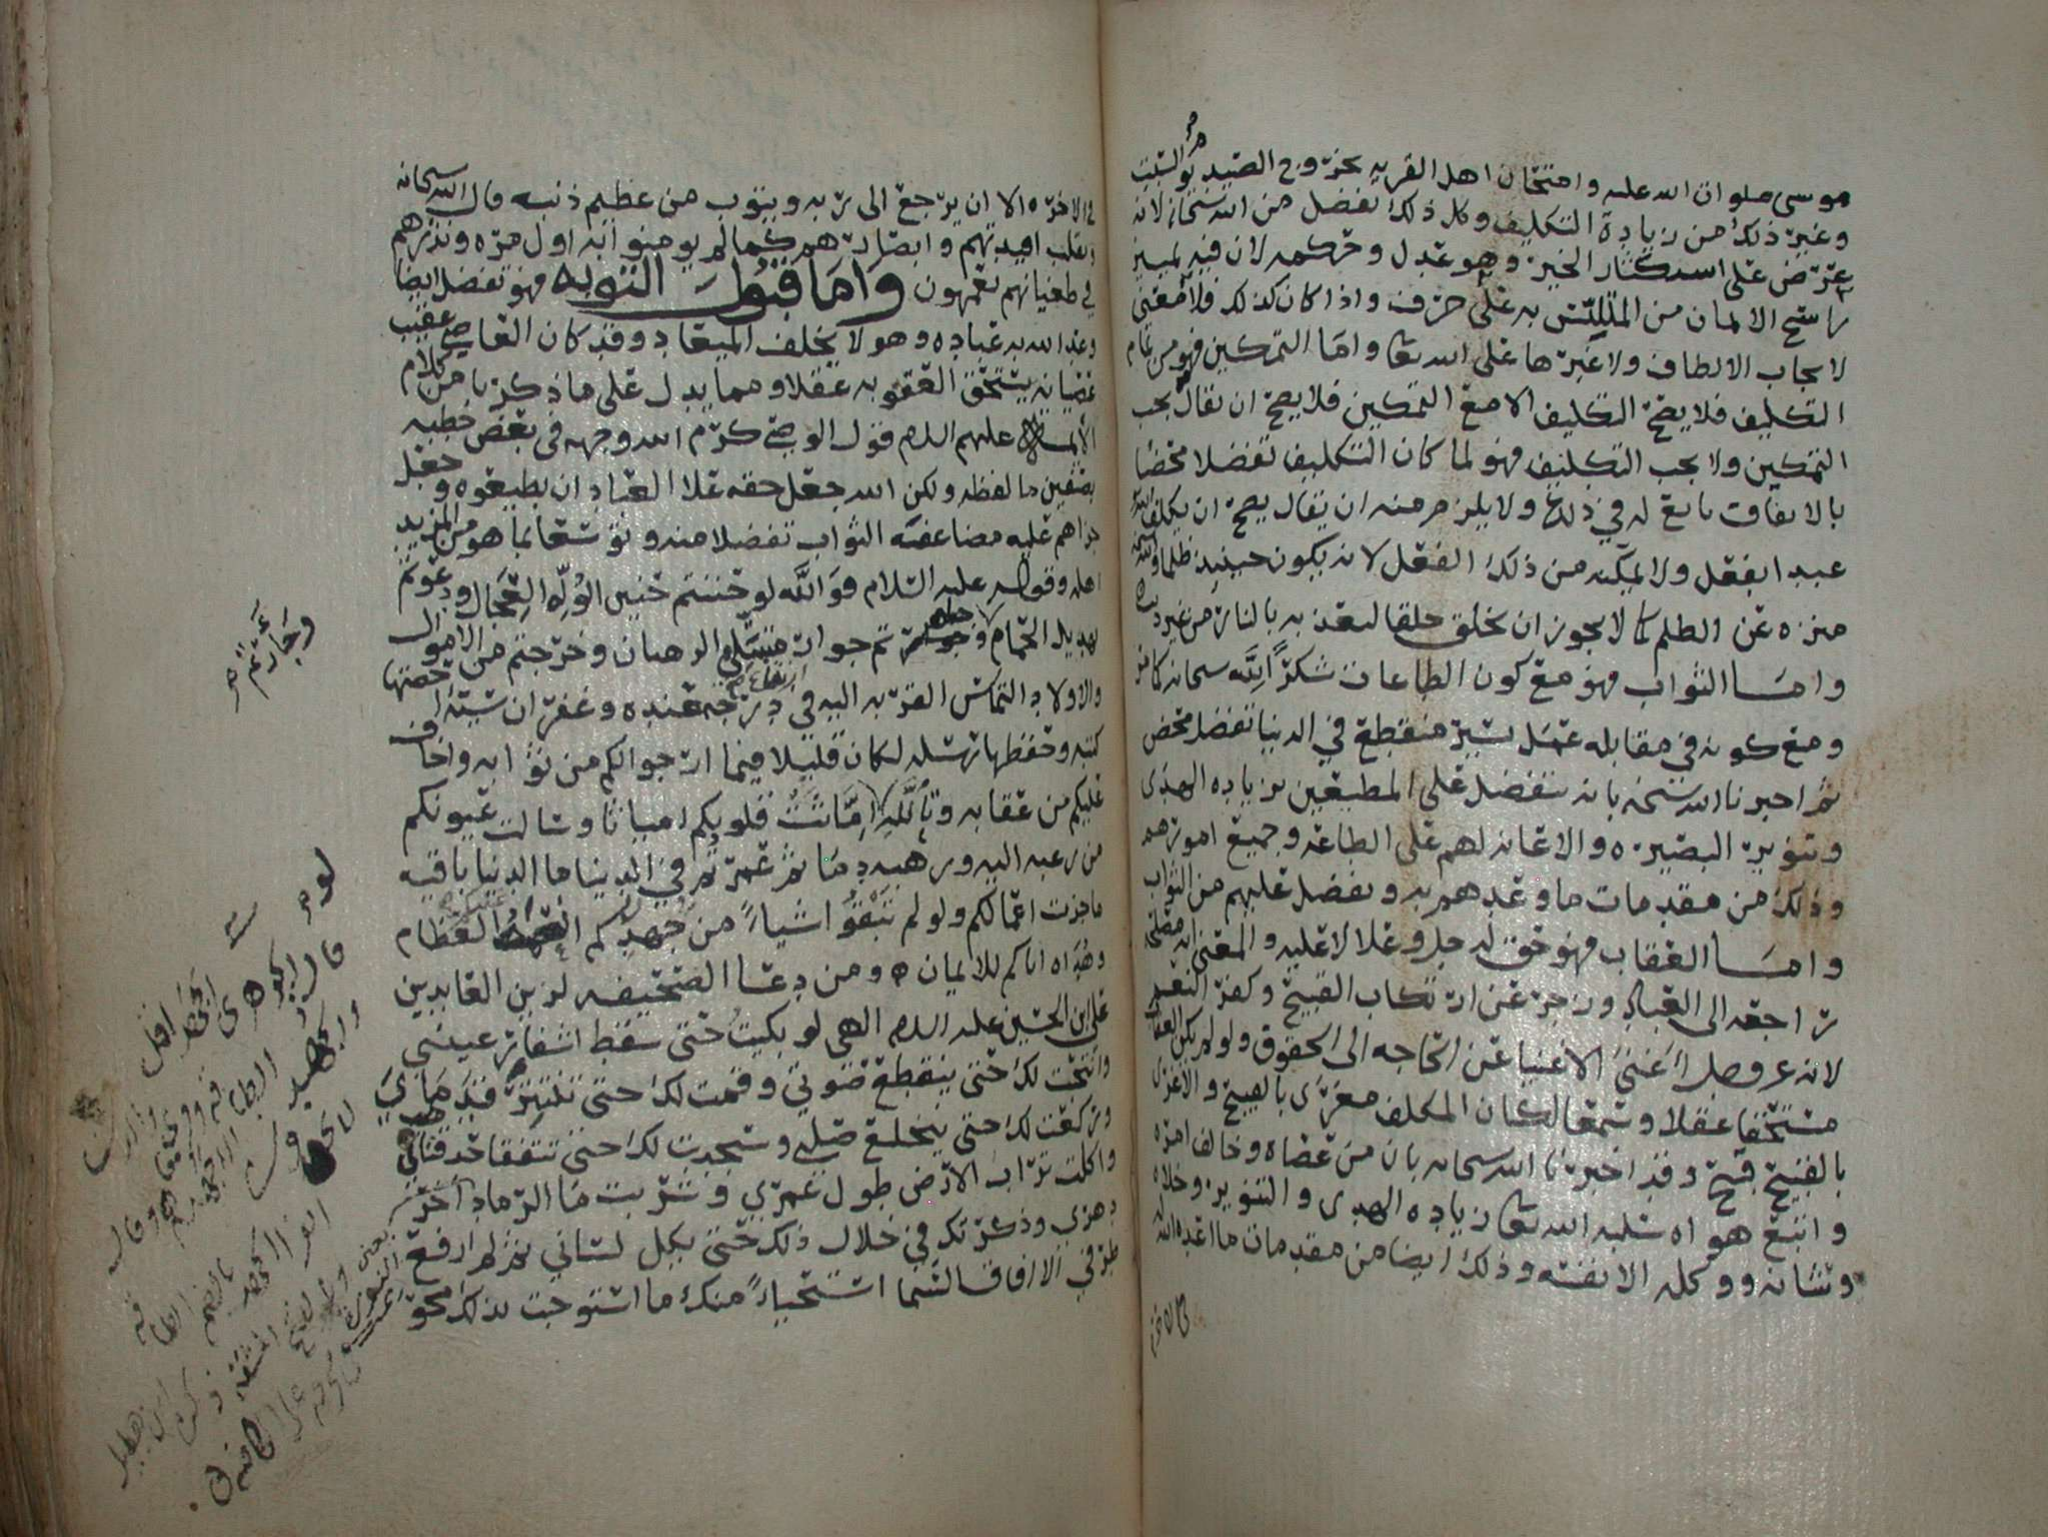 موسى صلوات الله عليه وامتحان اهل القريه بخروج الصيد يوم السبت
وغير ذلك من زيادة التكليف وكل ذلك تفضل من الله سبحانه لانه
عرض على استكثار الخير وهو عدل وحكمه لان فيه تمييز
راسخ الايمان من المتلبس به على حرف واذا كان كذلك فلا معنى
لايجاب الالطاف ولا غيرها على الله تعا واما التمكين فهو من تمام
التكليف فلا يصح التكليف الا مع التمكين فلا يصح ان يقال يجب
التمكين ولا يجب التكليف فهو لما كان التكليف تفضلا محضا
بالاتفاق تابع له في ذلك ولا يلزم منه ان يقال يصح ان يكلف الله
عبدا بفعل ولا يمكنه من ذلك الفعل لانه يكون حينيذ ظلما والله
منزه عن الظلم كما لا يجوز ان يخلق خلقا ليعذبه بالنار من غير ذنب
وامــا الثواب فهو مع كون الطاعات شكرًا لله سبحانه كما مر
ومع كونه في مقابله عمل يسير منقطع في الدنيا تفضل محض
ثم اخبرنا الله سبحنه بانه يتفضل على المطيعين بزياده الهدى
وتنوير البصيره والاعانه لهم على الطاعه وجميع امورهم
وذلك من مقدمات ما وعدهم به وتفضل عليهم من الثواب
وامــا العقاب فهو حق له جل وعلا لا عليه والمعنى انه مصلحه
راجعه الى العباد وزجر عن ارتكاب القبيح وكفر النعم
لانه عز وجل اغنى الاغنيا عن الحاجه الى الحقوق ولو لم يكن العقاب
مستحقا عقلا وسمعا لكان المكلف مغرى بالقبيح والاغرى
بالقبيح قبيح وقد اخبرنا الله سبحانه بان من عصاه وخالف امره
واتبع هواه سلبه الله تعا زياده الهدى والتنوير وخلاه
وشانه ووكله الى نفسه وذلك ايضا من مقدمات ما اعده الله
في الاخره الا ان يرجع الى ربه ويتوب من عظيم ذنبه قال الله سبحانه
ونقلب افيدتهم وابصارهم كما لم يومنوا به اول مره ونذرهم
في طغيانهم يعمهون واما قبول التوبه فهو تفضل ايضا
وعد الله به عباده وهو لا يخلف الميعاد وقد كان العاصي عقيب
عصيانه يستحق العقوبه عقلا ومما يدل على ما ذكرنا من كلام
الائمه عليهم السلم قول الوصي كرم الله وجهه في بعض خطبه
بصفين ما لفظه ولكن الله جعل حقه على العباد ان يطيعوه وجعل
جزاهم عليه مضاعفة الثواب تفضلا منه وتوسعا بما هو من المزيد
اهله وقوله عليه السلام فوالله لو حننتم حنين الوله العجال ودعوتم
بهديل الحمام وجارتم جوار متبتلي الرهبان وخرجتم من الاموال
والاولاد التماس القربه اليه في ارتفاع درجه عنده وغفران سيئه احصتها
كتبه وحفظها رسله لكان قليلا فيما ارجوا لكم من ثوابه واخاف
عليكم من عقابه وتالله لو انماثت قلوبكم امياثا وسالت عيونكم
من رغبه اليه ورهبه دما ثم عمرتم في الدنيا ما الدنيا باقيه
ما جزت اعمالكم ولو لم تبقوا شياً من جهدكم انعمه العظام
وهداه اياكم للايمان ه ومن دعا الصحيفه لزين العابدين
علي ابن الحسين عليه السلم الهي لو بكيت حتى تسقط اشفار عينيي
وانتحبت لك حتى ينقطع صوتي وقمت لك حتى تنتشر قدماي
وركعت لك حتى ينخلع صلبي وسجدت لك حتى تتفقا حدقتاي
واكلت تراب الارض طول عمري وشربت ما الرماد اخر
دهري وذكرتك في خلال ذلك حتى يكل لساني ثم لم ارفع
طرفي الى افاق السما استحياً منك ما استوجبت بذلك محو
وجارتم